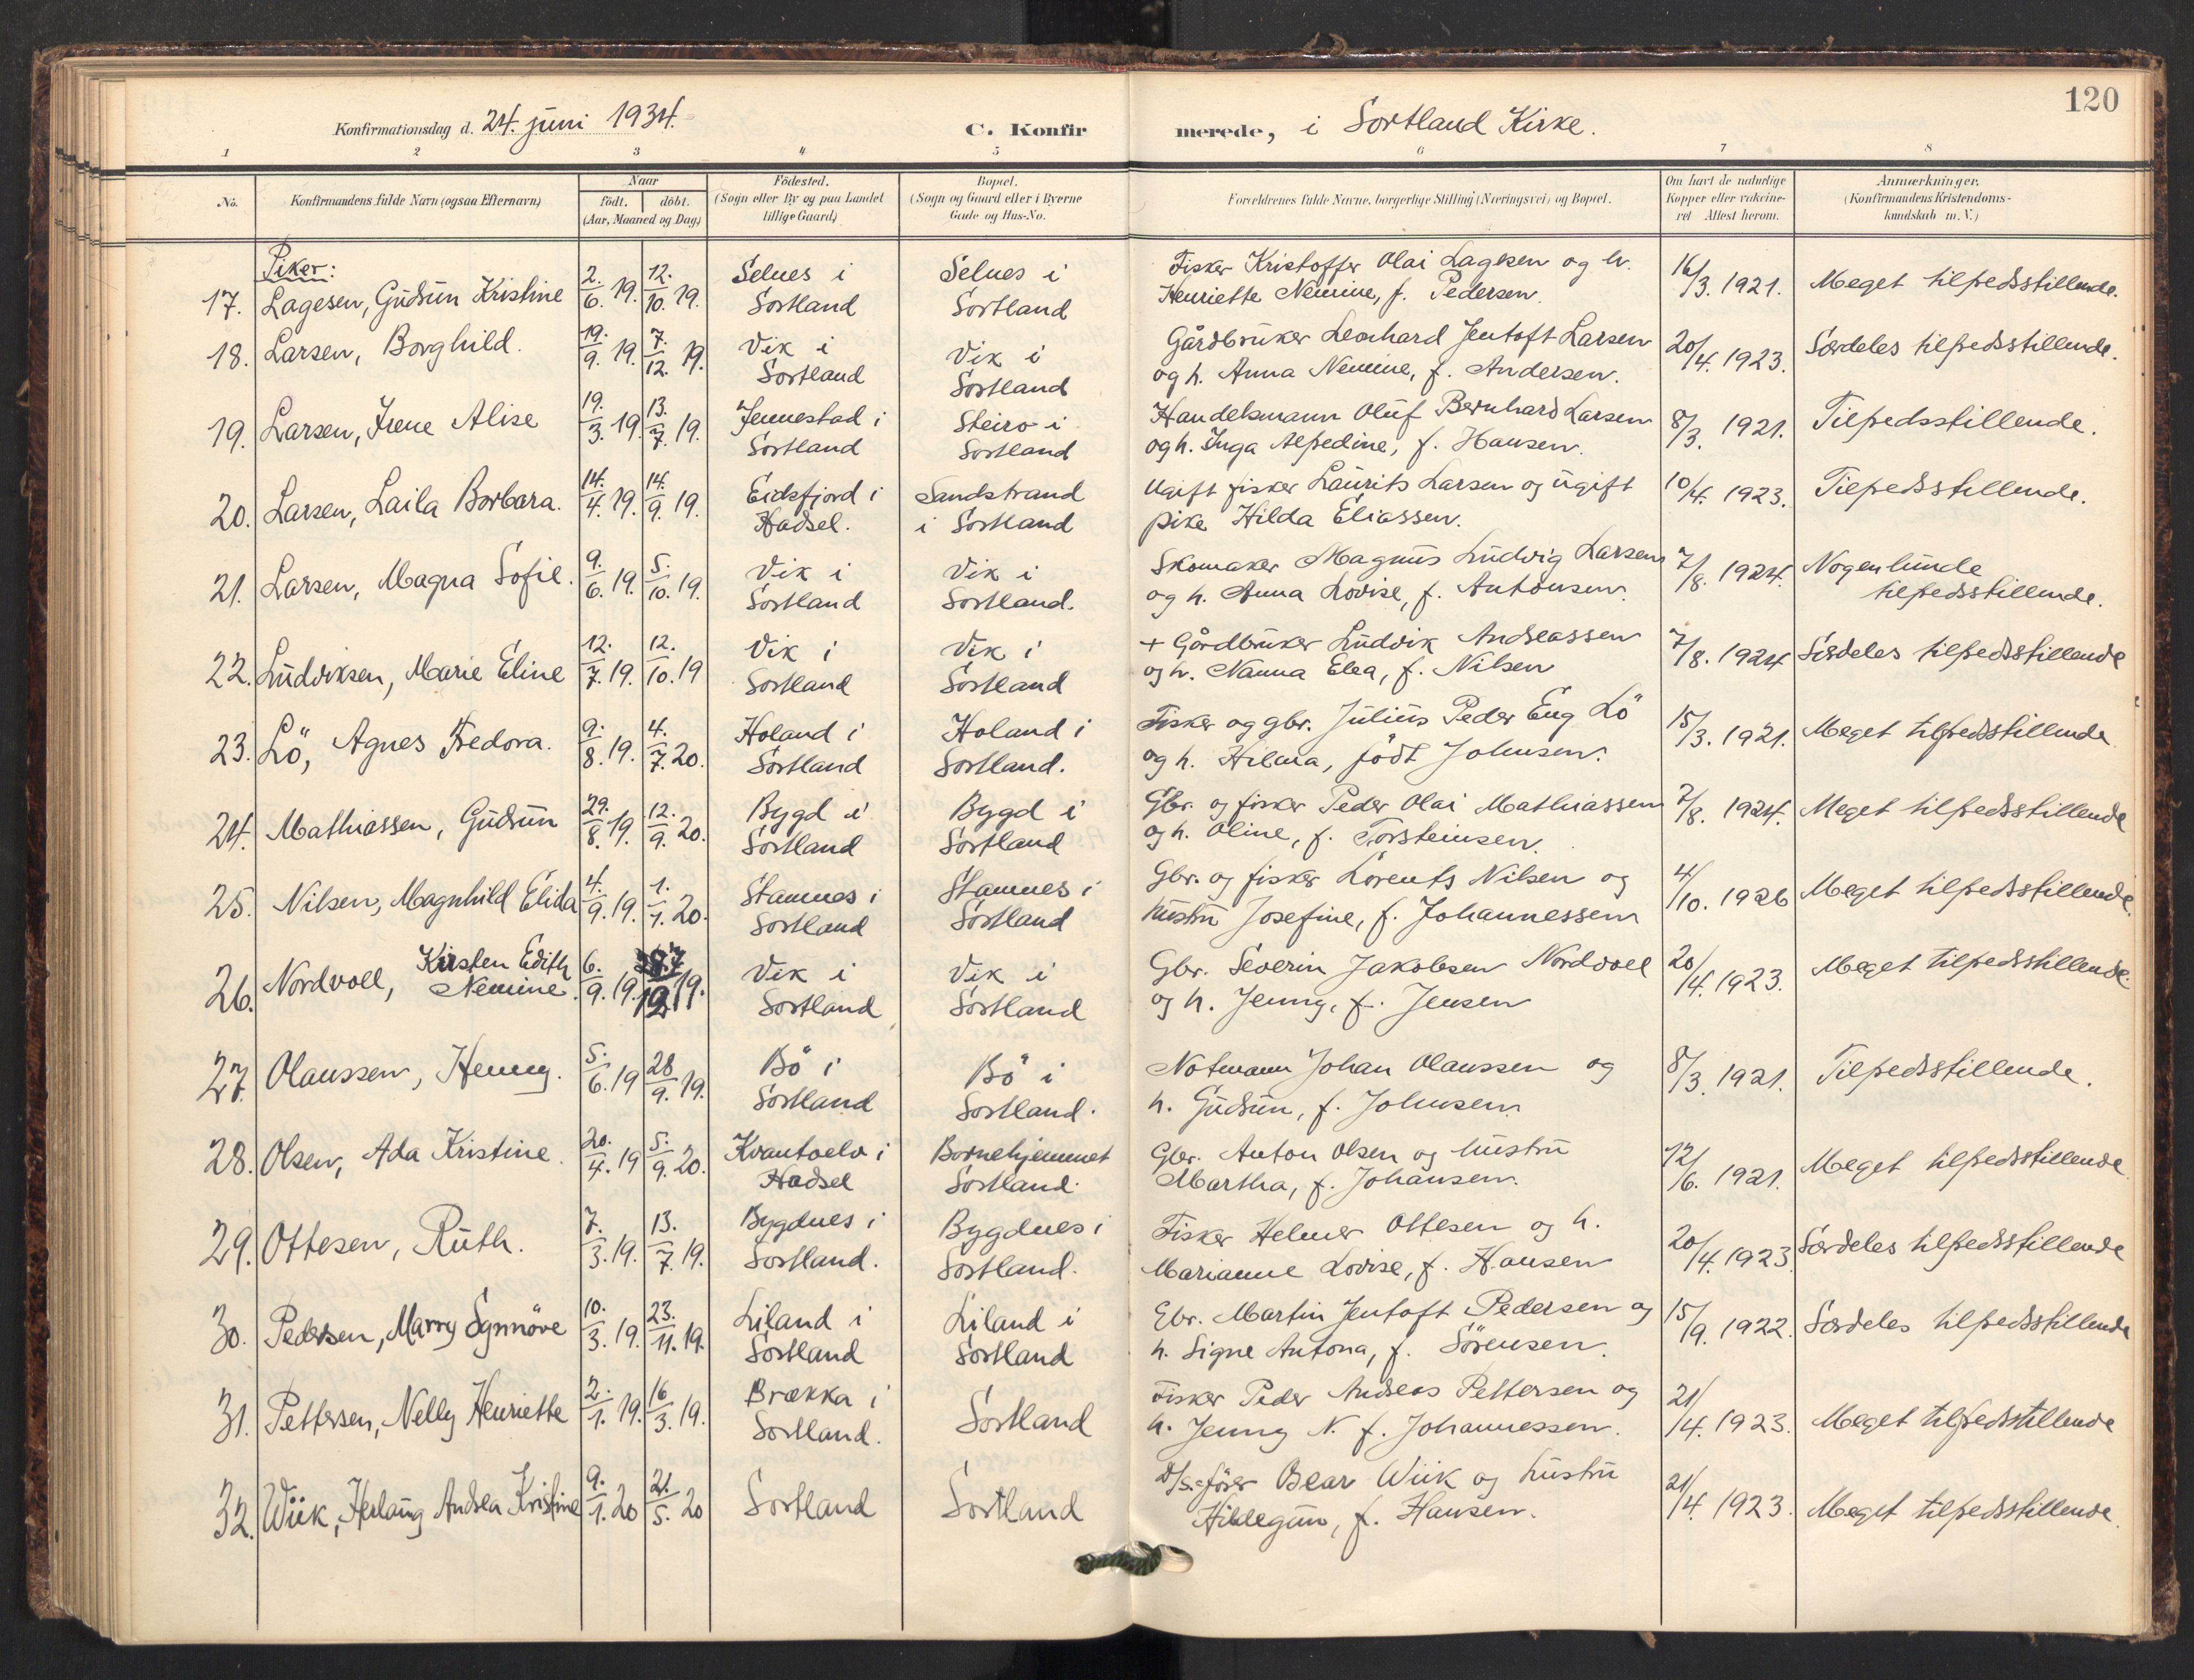 120
Konfirmationsdag d. 24. juni 1934.
C. Konfirmerede, i Sortland Kirke.
1 2 3 4 5 6 7 8
No.
Konfirmandens fulde Navn (ogsaa Efternavn)
Naar
født. døbt.
(Aar, Maaned og Dag)
Fødested.
(Sogn eller By og paa Landet
tillige Gaard)
Bopæl.
(Sogn og Gaard eller i Byerne
Gade og Hus-No.
Forældrenes fulde Navne, borgerlige Stilling (Næringsvei) og Bopæl.
Om havt de naturlige
Kopper eller vakcine-
ret Attest herom.
Anmærkninger.
(Konfirmandens Kristendoms-
kundskab m. V.)
Piker:
17. Lagesen, Gudrun Kristine 2./6. 19. 12./10. 19. Selnes i Sortland Selnes i Sortland
Fisker Kristoffer Olai Lagesen og h.
Henriette Nemine, f. Pedersen.
16/3. 1921. Meget tilfredsstillende.
18. Larsen, Borghild. 19./9. 19. 7./12. 19. Vik i Sortland Vik i Sortland
Gårdbruker Leonhard Jentoft Larsen
og h. Anna Nemine, f. Andersen.
20/4. 1923. Særdeles tilfredsstillende.
19. Larsen, Irene Alise 19./3. 19. 13./7. 19. Jennestad i Sortland Steiro i Sortland
Handelsmann Oluf Bernhard Larsen
og h. Inga Alfedine, f. Hansen.
8/3. 1921. Tilfredsstillende.
20. Larsen, Laila Borbara. 14./4. 19. 14./9. 19. Eidsfjord i Hadsel. Sandstrand i Sortland
Ugift fisker Laurits Larsen og ugift
pike Hilda Eliassen.
10/4. 1923. Tilfredsstillende.
21. Larsen, Magna Sofie. 9./6. 19. 5./10. 19. Vik i Sortland Vik i Sortland.
Skomaker Magnus Ludvig Larsen
og h. Anna Lovise, f. Antonsen.
7/8. 1924. Nogenlunde
tilfredsstillende.
22. Ludviksen, Marie Eline 12./7. 19. 12./10. 19 Vik i Sortland Vik i Sortland
+ Gårdbruker Ludvik Andreassen
og h. Nanna Elea, f. Nilsen
7/8. 1924 Særdeles tilfredsstillende
23. Lö, Agnes Fredora. 9./8. 19. 4./7. 20. Holand i Sortland Holand i Sortland.
Fisker og gbr. Julius Peder Eug Lö
og h. Hilma, födt Johnsen.
15/3. 1921. Meget tilfredsstillende
24. Mathiassen, Gudrun 29./8. 19. 12./9. 20. Bygd i Sortland Bygd i Sortland
Gbr. og fisker Peder Olai Mathiassen
og h. Oline, f. Torsteinsen.
7/8. 1924. Meget tilfredsstillende
25. Nilsen, Magnhild Elida 4./9. 19. 1./1. 20. Stamnes i Sortland Stamnes i Sortland
Gbr. og fisker Lorents Nilsen og
hustru Josefine, f. Johannessen
4/10. 1926 Meget tilfredsstillende.
26. Nordvoll, Kirsten Edith Nemine. 6./9. 19. 12. 19. Vik i Sortland Vik i Sortland
Gbr. Severin Jakobsen Nordvoll
og h. Jenny, f. Jensen
20/4. 1923. Meget tilfredsstillende.
27. Olaussen, Henny. 5./6. 19 28/9. 19. Bö i Sortland Bö i Sortland.
Notmann Johan Olaussen og
h. Gudrun, f. Johnsen
8/3. 1921. Tilfredsstillende.
28. Olsen, Ada Kristine. 20./4. 19 5./9. 20. Kvantoelv i Hadsel Barnehjemmet Sortland.
Gbr. Anton Olsen og hustru
Martha, f. Johansen.
12/6. 1921. Meget tilfredsstillende
29. Ottesen, Ruth. 7./3. 19. 13./7. 19. Bygdnes i Sortland. Bygdnes i Sortland.
Fisker Helmer Ottesen og h.
Marianne Lovise, f. Hansen
20/4. 1923 Særdeles tilfredsstillende
30. Pedersen, Marry Synnöve 10./3. 19. 23./11. 19. Liland i Sortland Liland i Sortland
Gbr. Martin Jentoft Pedersen og
h. Signe Antona, f. Sörensen.
15/9. 1922. Særdeles tilfredsstillende
31. Pettersen, Nelly Henriette 2./1. 19. 16/3. 19. Brækka i Sortland. Sortland
Fisker Peder Andreas Pettersen og
h. Jenny N. f. Johannessen.
21/4. 1923. Meget tilfredsstillende
32. Wiik, Herlaug Andrea Kristine 9./1. 20 21./5. 20 Sortland Sortland
D/s-förer Bear Wiik og hustru
Hildegun, f. Hansen.
21/4. 1923. Meget tilfredsstillende.